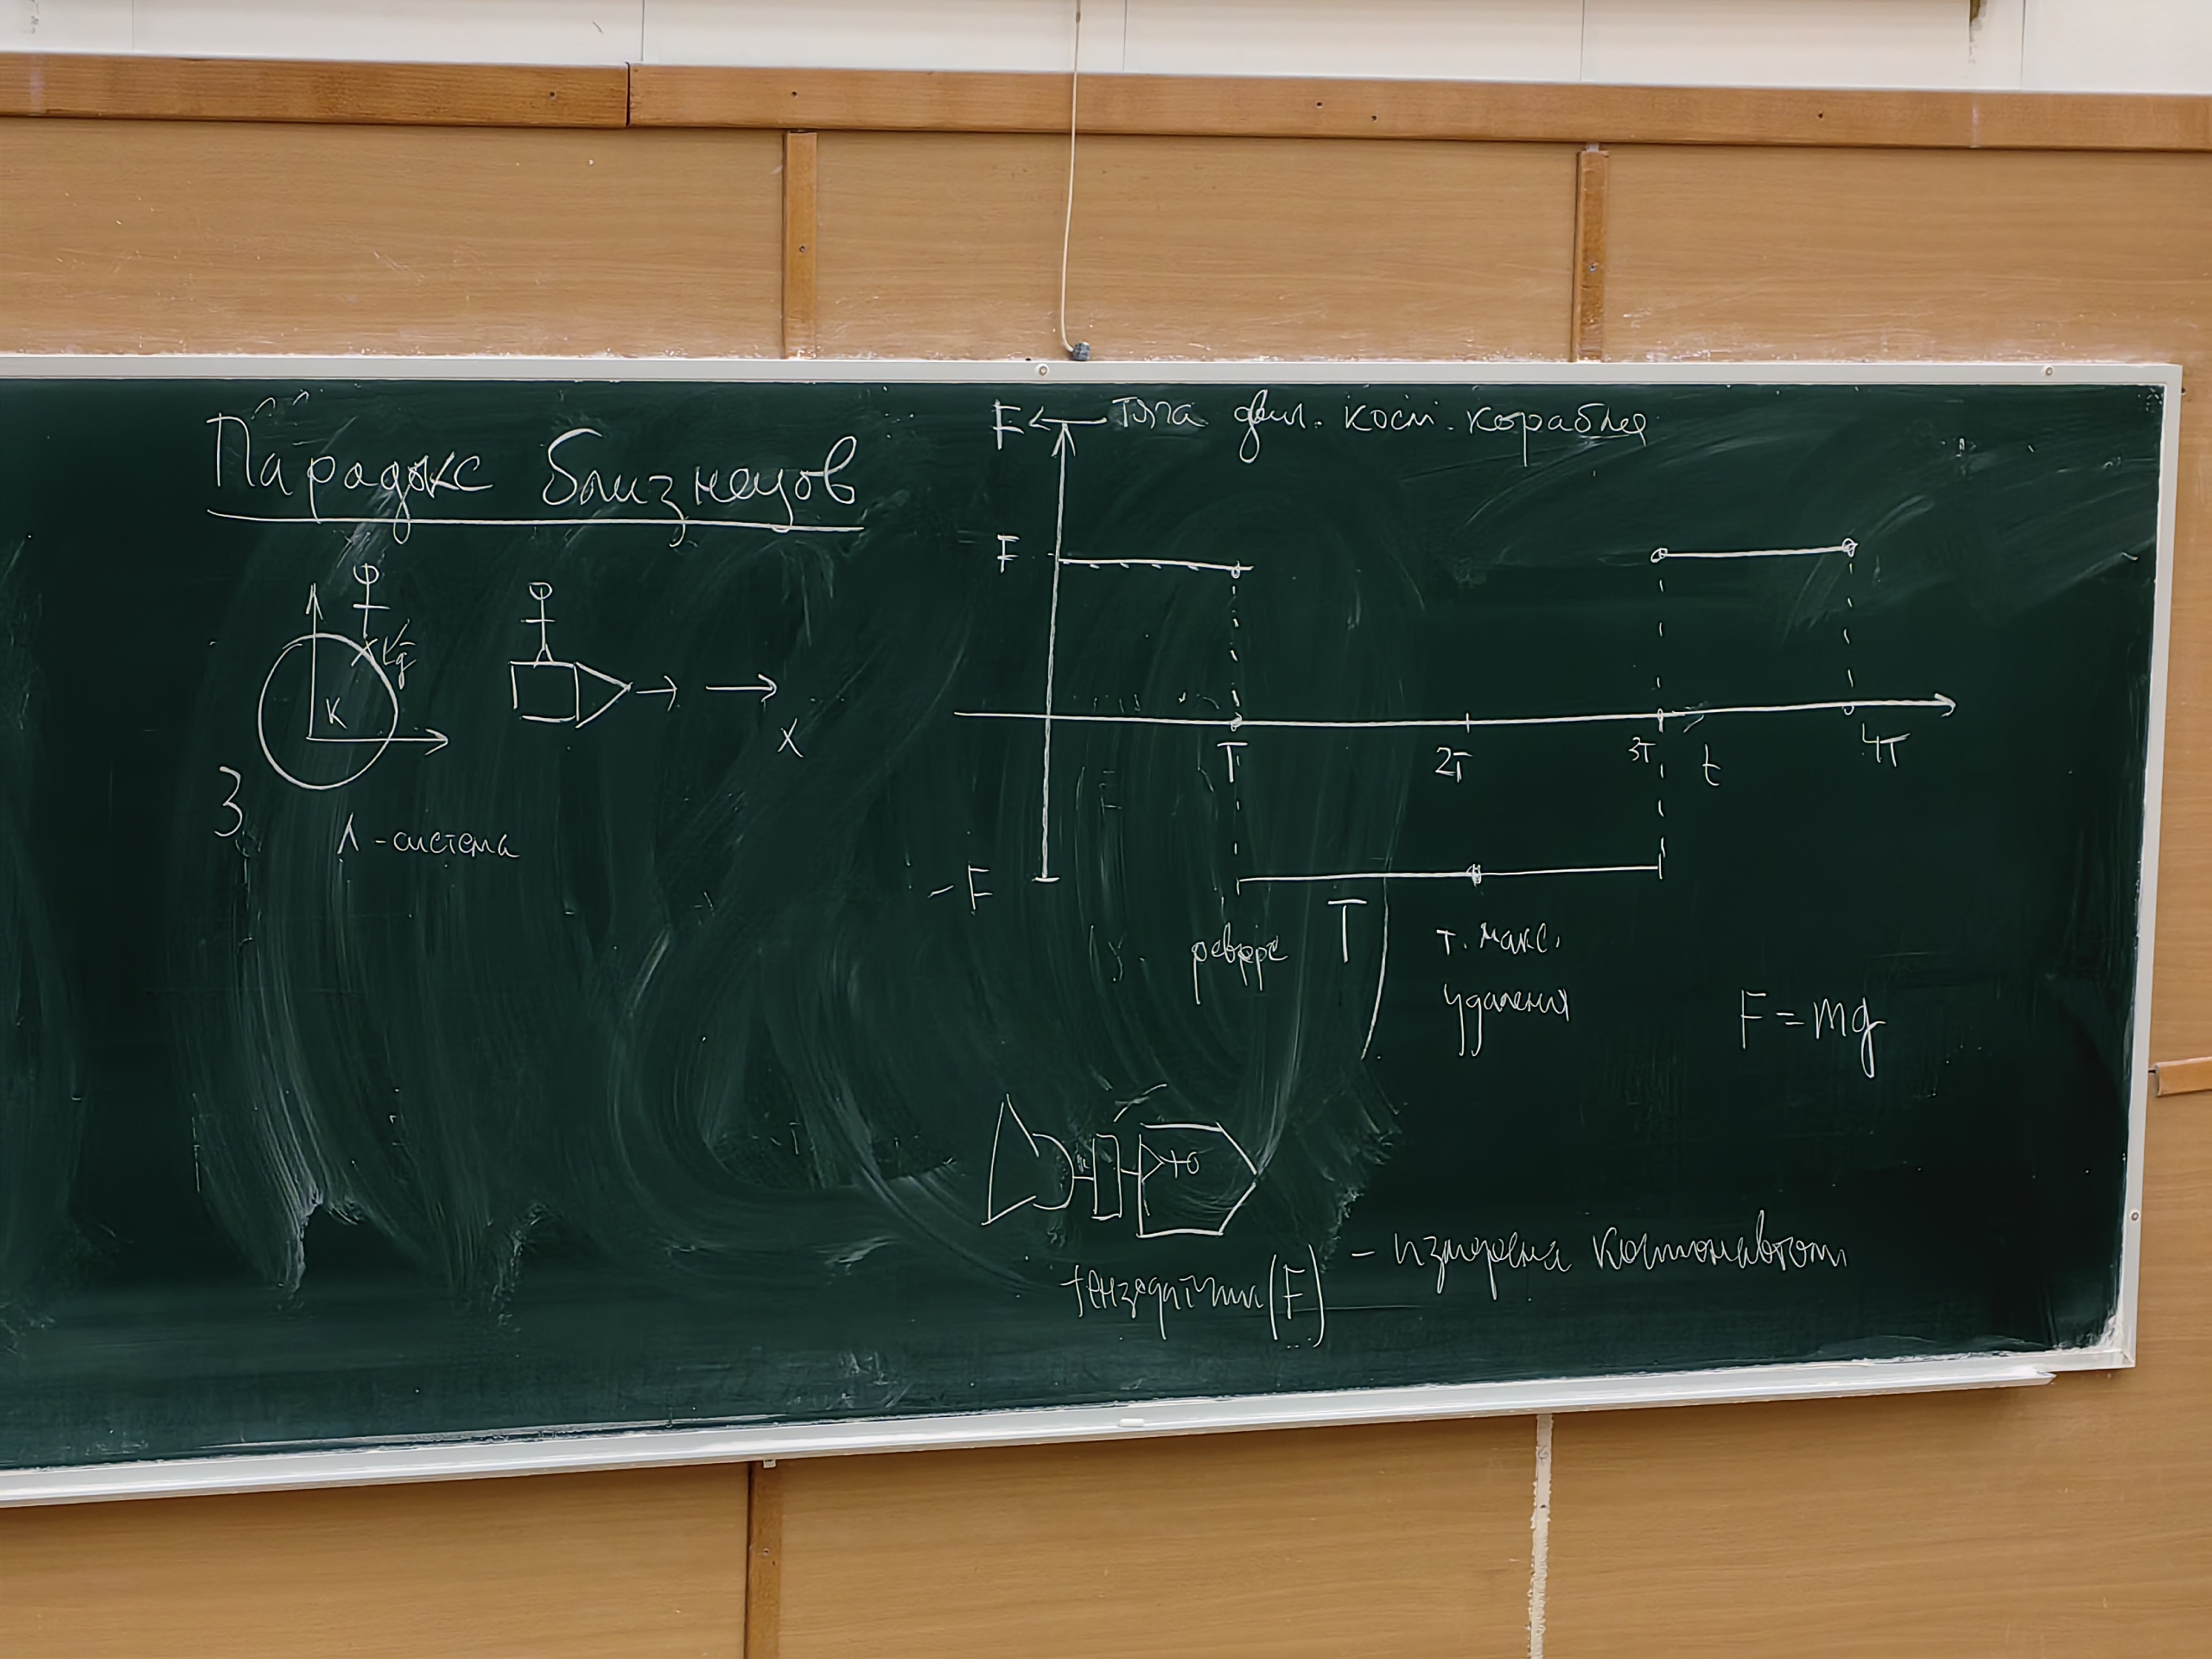 Парадокс близнецов
K
g
x
З
Л-система
F ← тяга двиг. косм. корабля
F
T
2T
3T
t
4T
-F
реверс
T
т. макс.
удаления
F = mg
тензодатчик (F) - измерена космонавтом